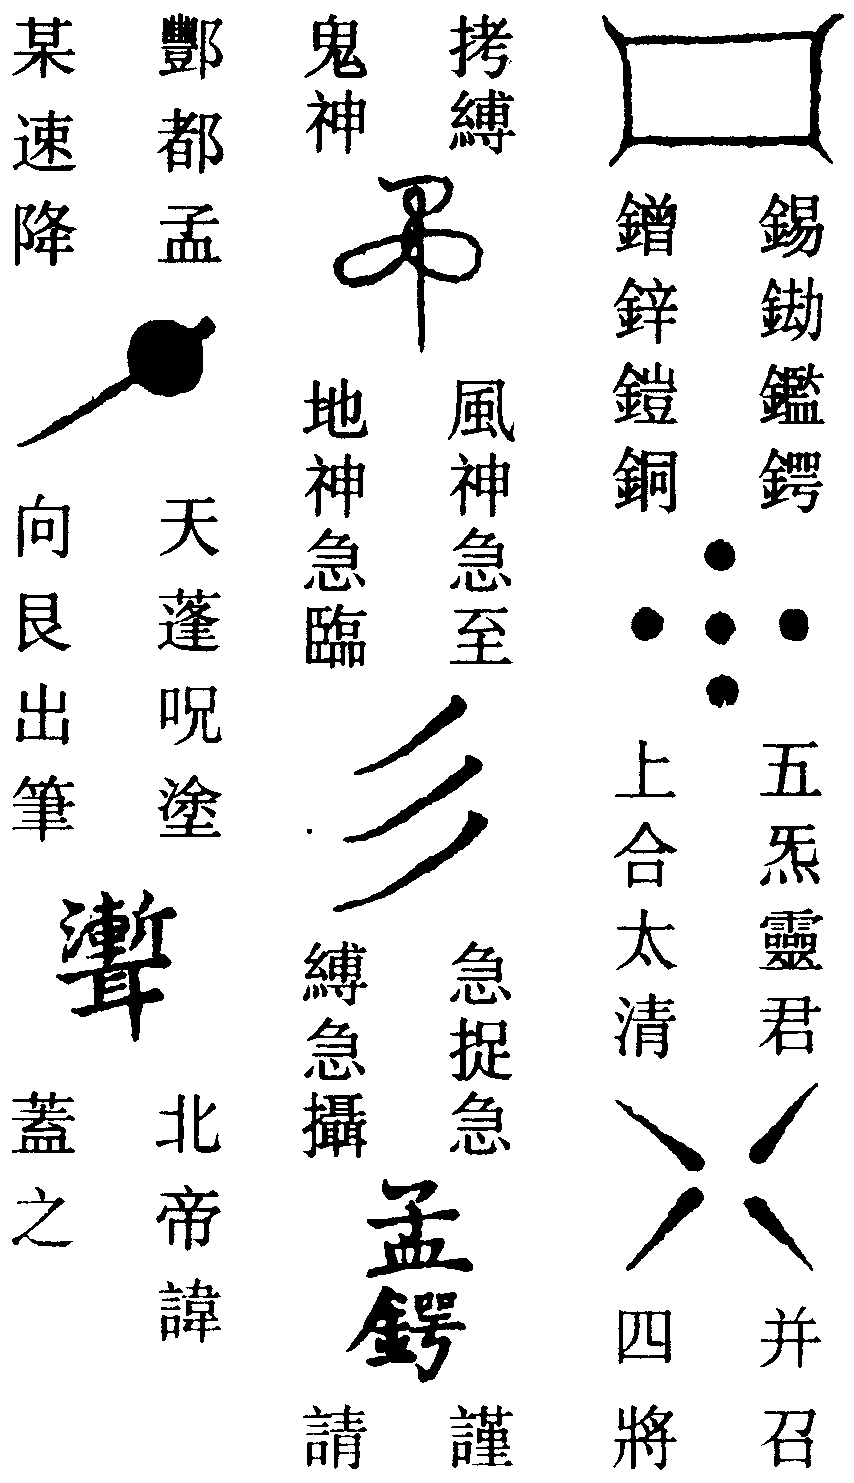 錫鑑鍔
鏳鋅鎧銅
五炁靈君
上合太清
并召
四將
拷縛
鬼神
風神急至
地神急臨
急捉急
縛急攝
孟
鍔
謹
請
酆都孟
某速降
天蓬呪塗
向艮出筆
聻
北帝諱
蓋之